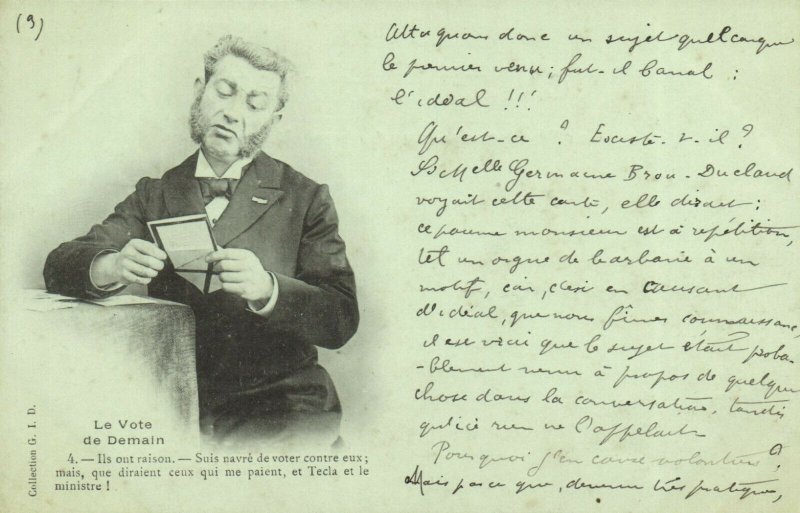 (9)
Attaquons donc un sujet quelconque
le premier venu ; fut-il banal :
l'idéal !!!
Qu'est-ce ? Existe-t-il ?
Si Melle Germaine Brou-Duclaud
voyait cette carte, elle dirait :
ce pauvre monsieur est à répétition,
tel un orgue de barbarie à un
motif, car, c'est en causant
d'idéal, que nous fîmes connaissance,
il est vrai que le sujet était proba-
-blement venu à propos de quelque
chose dans la conversation, tandis
qu'ici rien ne l'appelait
Pourquoi j'en cause volontiers ?
Mais parce que, devenu très pratique,
Le Vote
de Demain
4. — Ils ont raison. — Suis navré de voter contre eux ;
mais, que diraient ceux qui me paient, et Tecla et le
ministre !
Collection G. I. D.